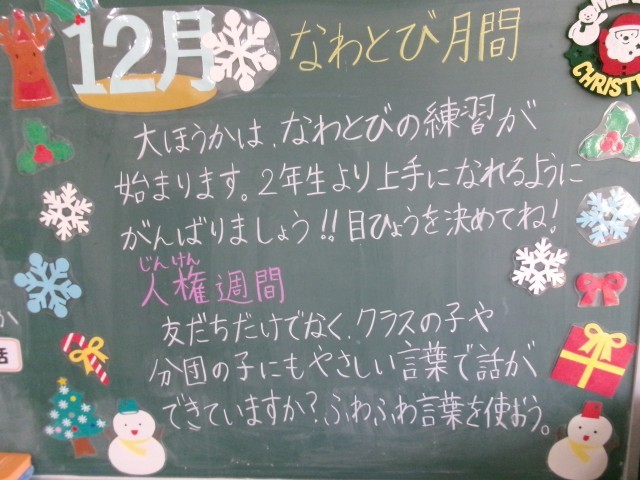 12月 なわとび月間
大ほうかは、なわとびの練習が
始まります。2年生より上手になれるように
がんばりましょう!!目ひょうを決めてね!
じんけん
人権週間
友だちだけでなく、クラスの子や
分団の子にもやさしい言葉で話が
できていますか?ふわふわ言葉を使おう。
CHRIST
話